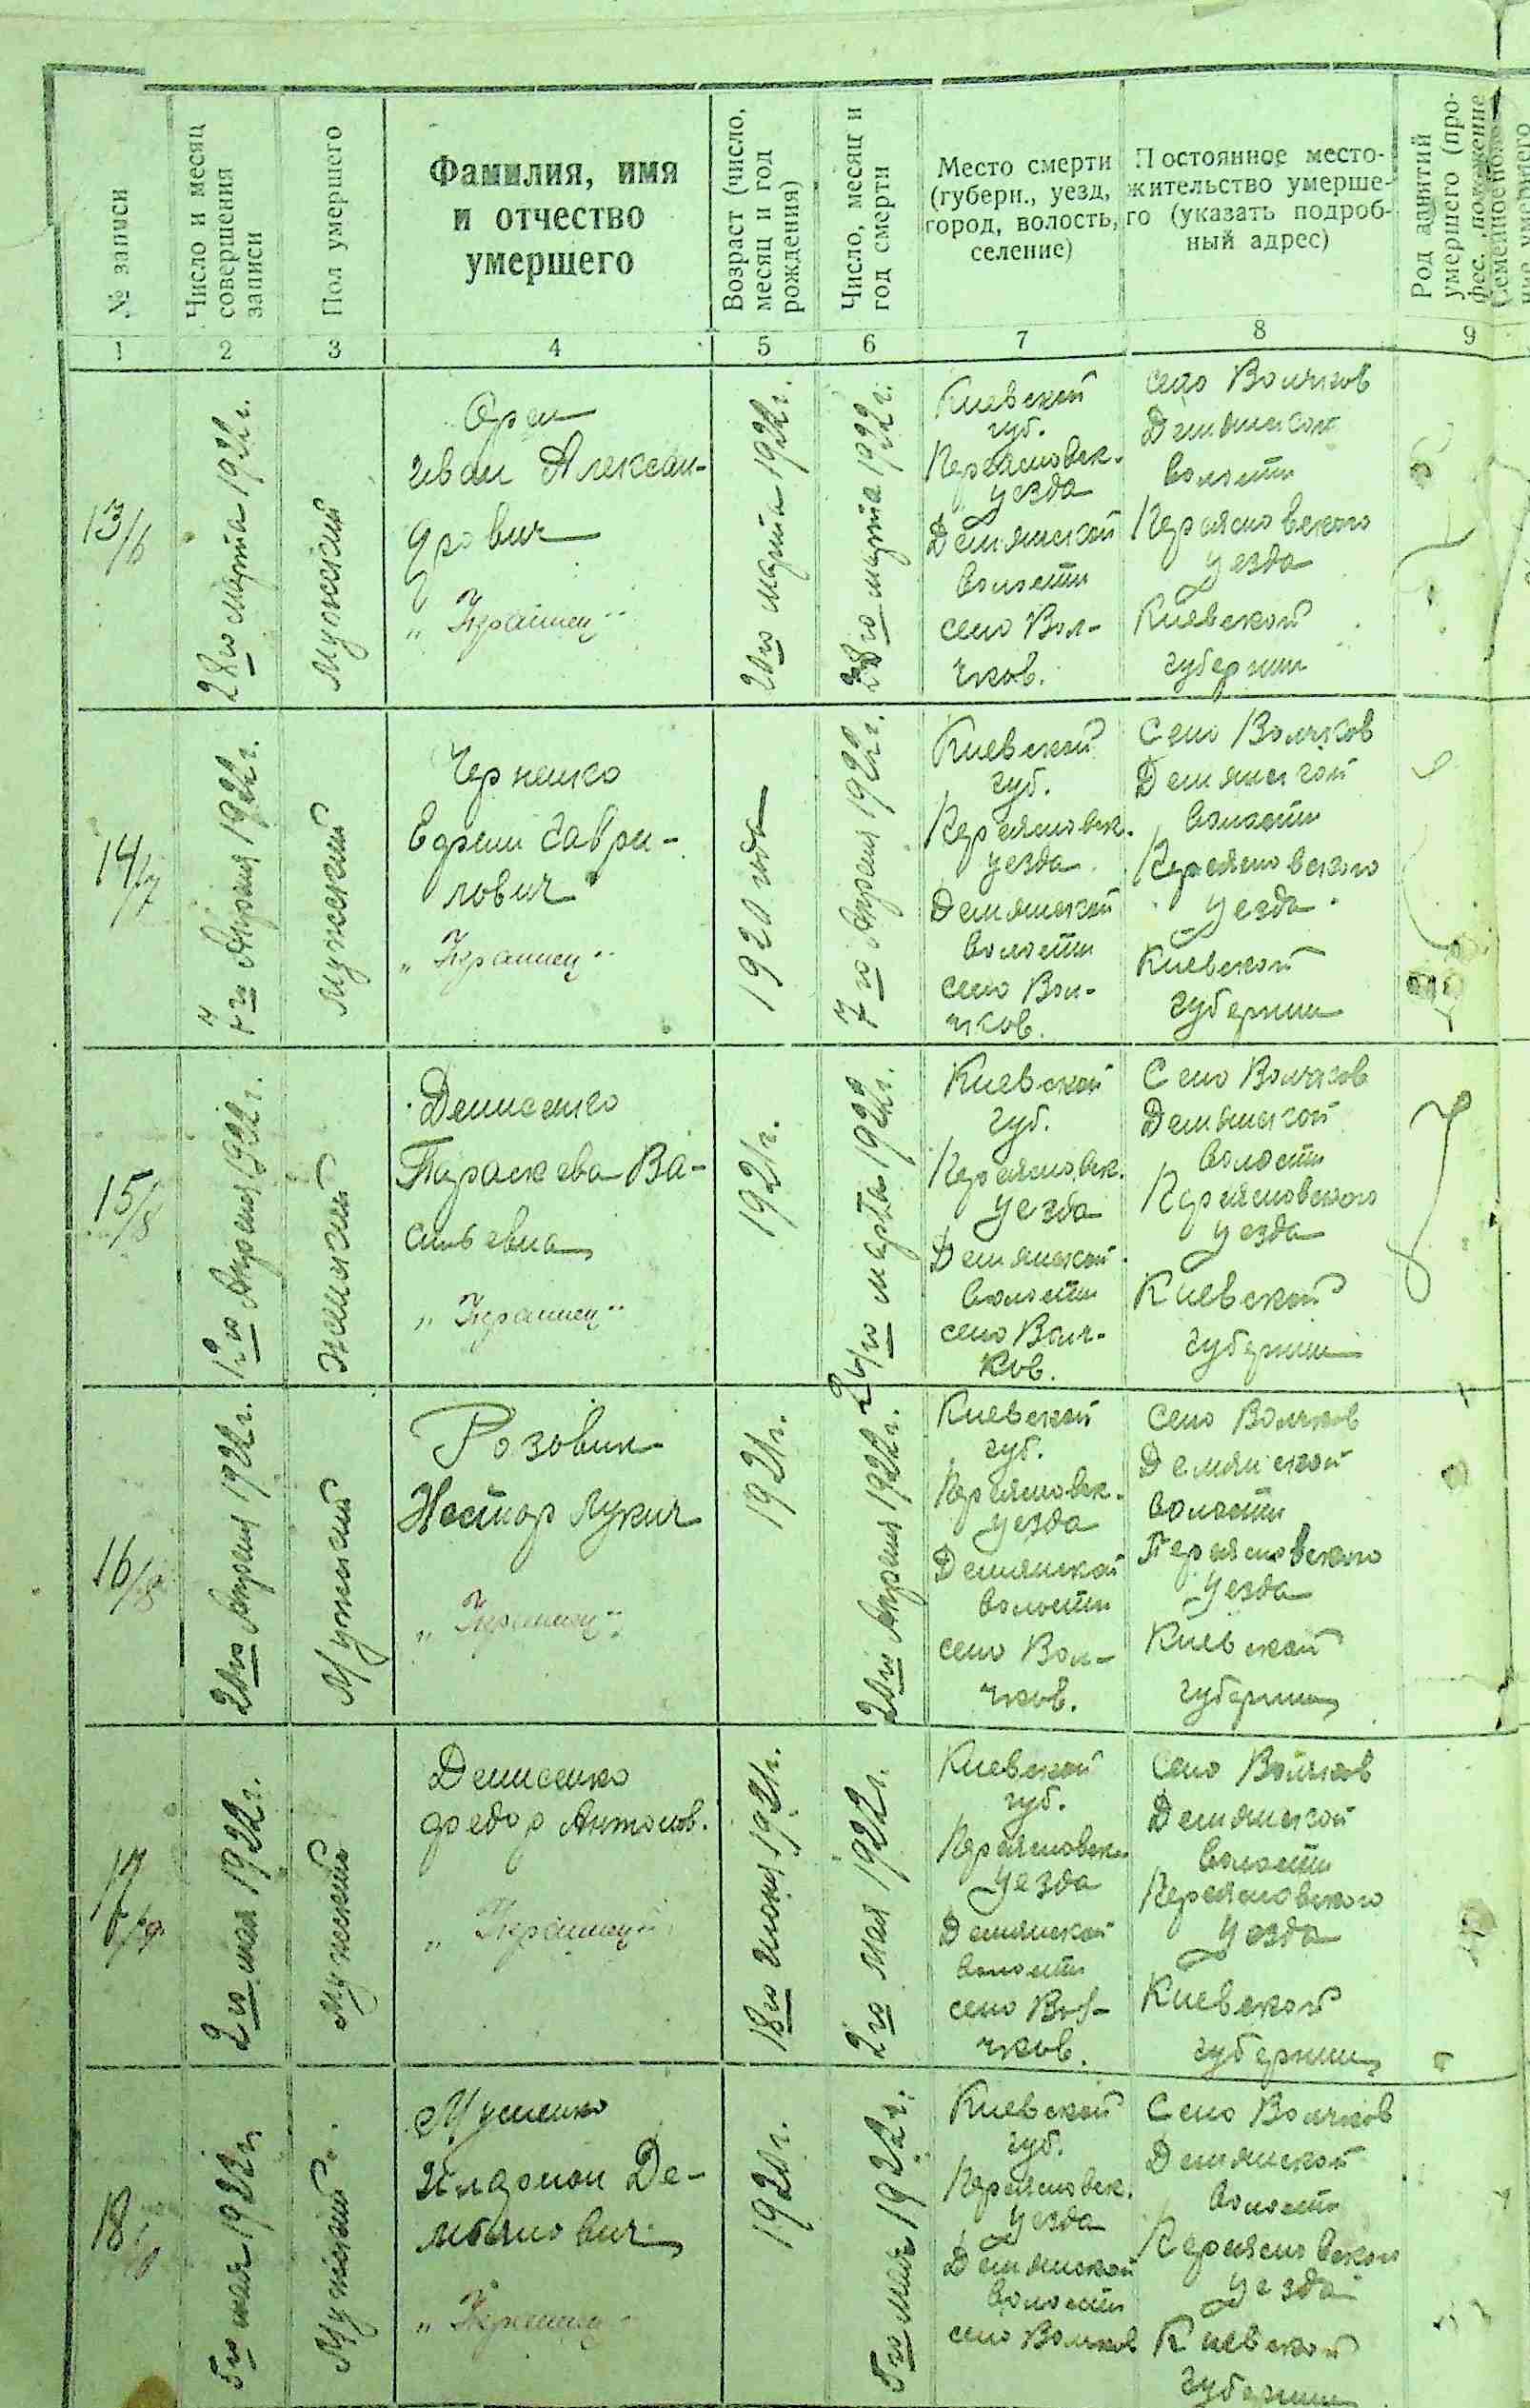 № записи
Число и месяц
совершения
записи
Пол умершего
Фамилия, имя
и отчество
умершего
Возраст (число,
месяц и год
рождения)
Число, месяц и
год смерти
Место смерти
(губерн., уезд,
город, волость,
селение)
Постоянное место-
жительство умерше-
го (указать подроб-
ный адрес)
Род занятий
умершего (про-
фес. положение
Семейное
1
2
3
4
5
6
7
8
9
13/6
28го марта 1922г.
Мужский
Орел
Иван Алексан-
дрович
„Украинец"
20го марта 1922г.
28го марта 1922г.
Киевской
губ.
Переяславск.
уезда
Демянской
волости
село Вол-
чков.
село Волчков
Демянской
волости
Переяславского
уезда
Киевской
губернии
14/7
7го Апреля 1922г.
Мужский
Черненко
Ефрем Гаври-
лович
„Украинец"
1920 года
7го Апреля 1922г.
Киевской
губ.
Переяславск.
уезда
Демянской
волости
село Вол-
чков.
Село Волчков
Демянской
волости
Переяславского
уезда
Киевской
губернии
15/8
12го Апреля 1922г.
Женский
Денисенко
Параскева Ва-
сильевна
„Украинец"
1921г.
24го марта 1922г.
Киевской
губ.
Переяславск.
уезда
Демянской
волости
село Волч-
ков.
Село Волчков
Демянской
волости
Переяславского
уезда
Киевской
губернии
16/8
20го Апреля 1922г.
Мужский
Розовик
Нестор Лукич
„Украинец"
1921г.
20го Апреля 1922г.
Киевской
губ.
Переяславск.
уезда
Демянской
волости
село Вол-
чков.
Село Волчков
Демянской
волости
Переяславского
уезда
Киевской
губернии
17/9
2го мая 1922г.
Мужский
Денисенко
Федор Антонов.
„Украинец"
18го июня 1921г.
2го мая 1922г.
Киевской
губ.
Переяславск.
уезда
Демянской
волости
село Вол-
чков.
Село Волчков
Демянской
волости
Переяславского
уезда
Киевской
губернии
18/10
5го мая 1922г.
Мужский
Мусиенко
Иларион Де-
мьянович
„Украинец"
1920г.
5го мая 1922г.
Киевской
губ.
Переяславск.
уезда
Демянской
волости
село Волчков
Село Волчков
Демянской
волости
Переяславского
уезда
Киевской
губернии